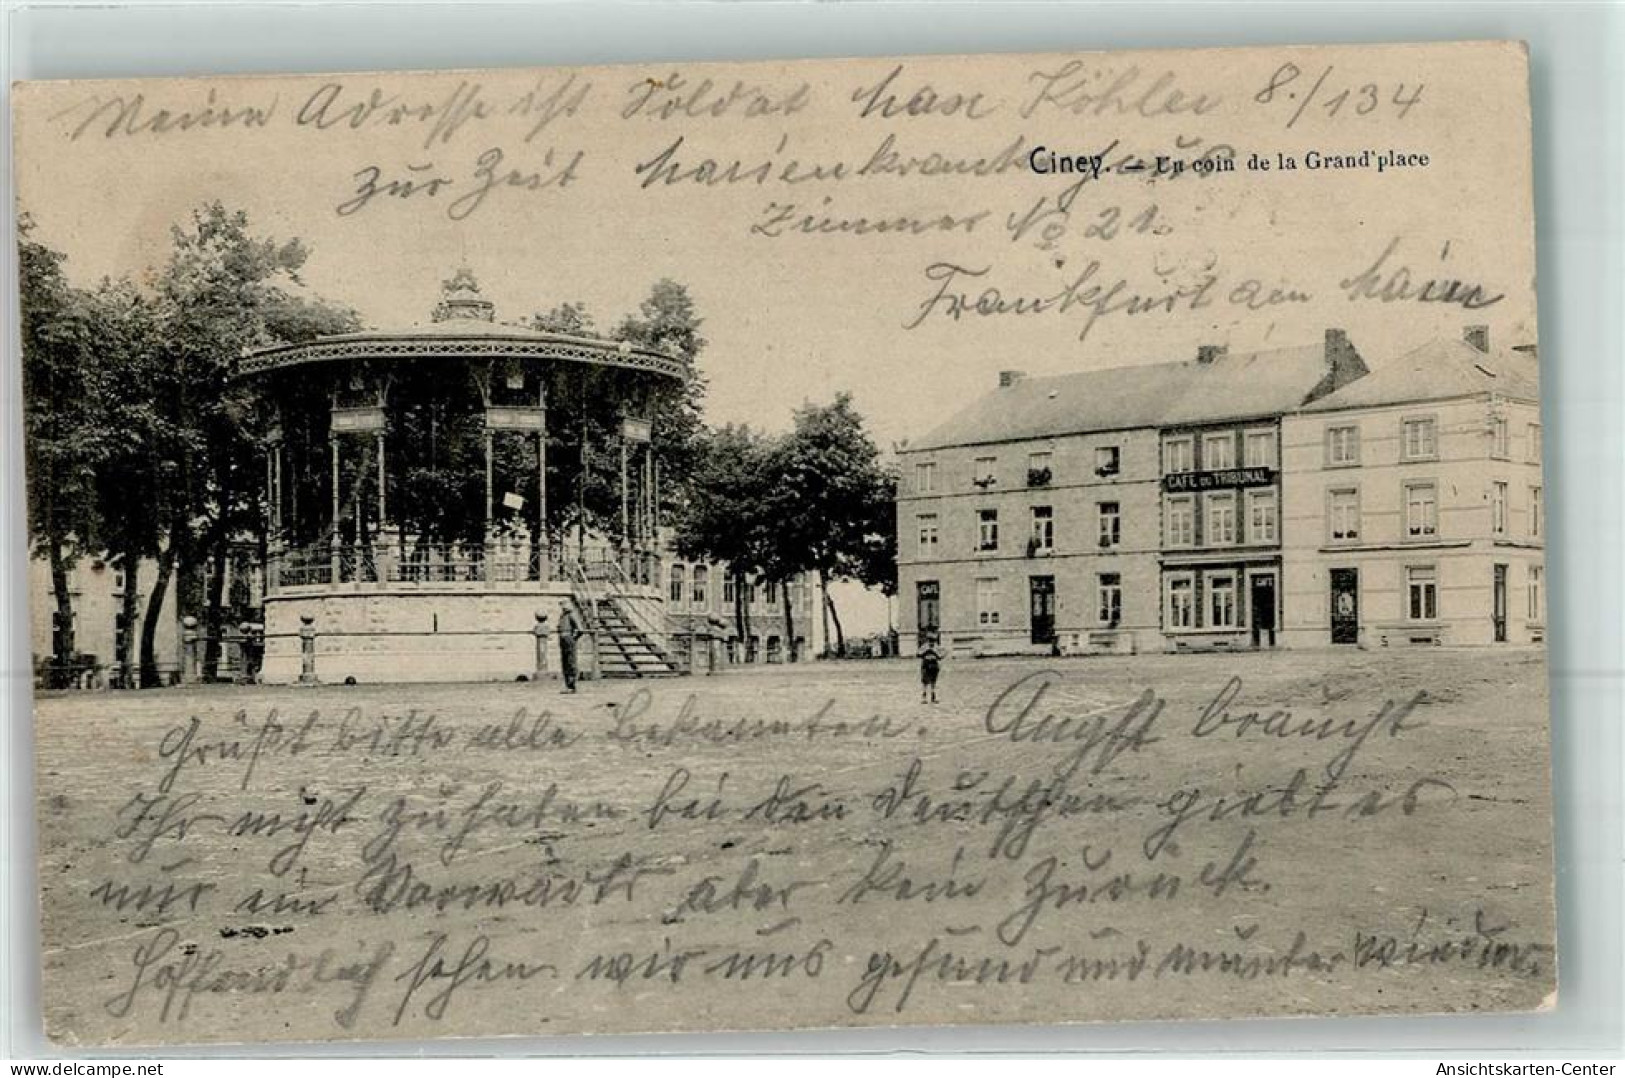 Meine Adresse ist Soldat Max Köhler 8./134
zur Zeit Marienkrankhaus
Ciney. — Un coin de la Grand'place
Zimmer No 21.
Frankfurt am Main
CAFÉ DU TRIBUNAL
CAFE
CAFE
Grüßt bitte alle Bekannten. Angst braucht
Ihr nicht zu haben bei den Deutschen giebt es
nur ein Vorwärts aber kein Zurück.
Hoffendlich sehen wir uns gesund und munter wieder.
AnsichtsKarten-Center
delcampe.net
TM-Karten